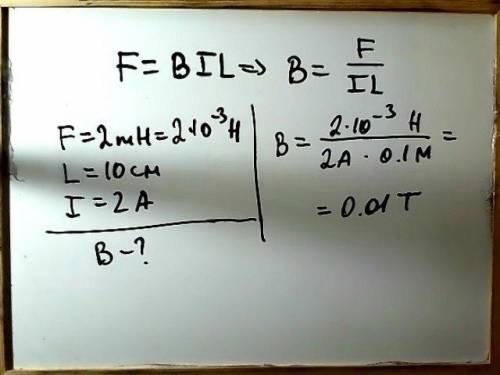 F = BIL => B = F/IL
F = 2mH = 2·10⁻³ H
L = 10 см
I = 2A
B - ?
B = 2·10⁻³ H / 2A · 0.1м =
= 0.01 T